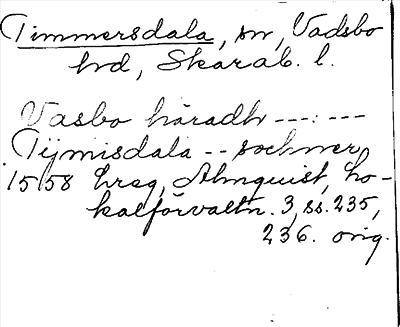 Timmersdala, sn, Vadsbo
hd, Skarab. l.
Vasbo häradh ---:---
Tijmisdala -- sochner
1558 hreg, Almquist, Lo-
kalförvaltn. 3, ss. 235,
236. orig.